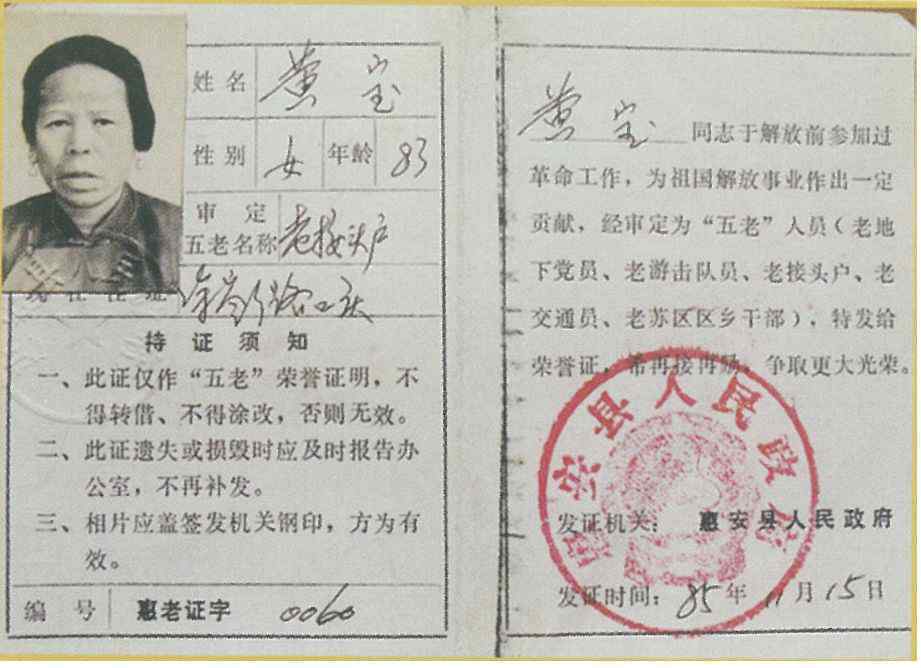 姓名 黄宝
性别 女 年龄 83
审定
五老名称 老接头户
现在住址
持证须知
一、此证仅作“五老”荣誉证明，不
得转借、不得涂改，否则无效。
二、此证遗失或损毁时应及时报告办
公室，不再补发。
三、相片应盖签发机关钢印，方为有
效。
编号 惠老证字 0060
黄宝 同志于解放前参加过
革命工作，为祖国解放事业作出一定
贡献，经审定为“五老”人员（老地
下党员、老游击队员、老接头户、老
交通员、老苏区区乡干部），特发给
荣誉证，希再接再励，争取更大光荣。
惠安县人民政府
发证机关：惠安县人民政府
发证时间：85年11月15日